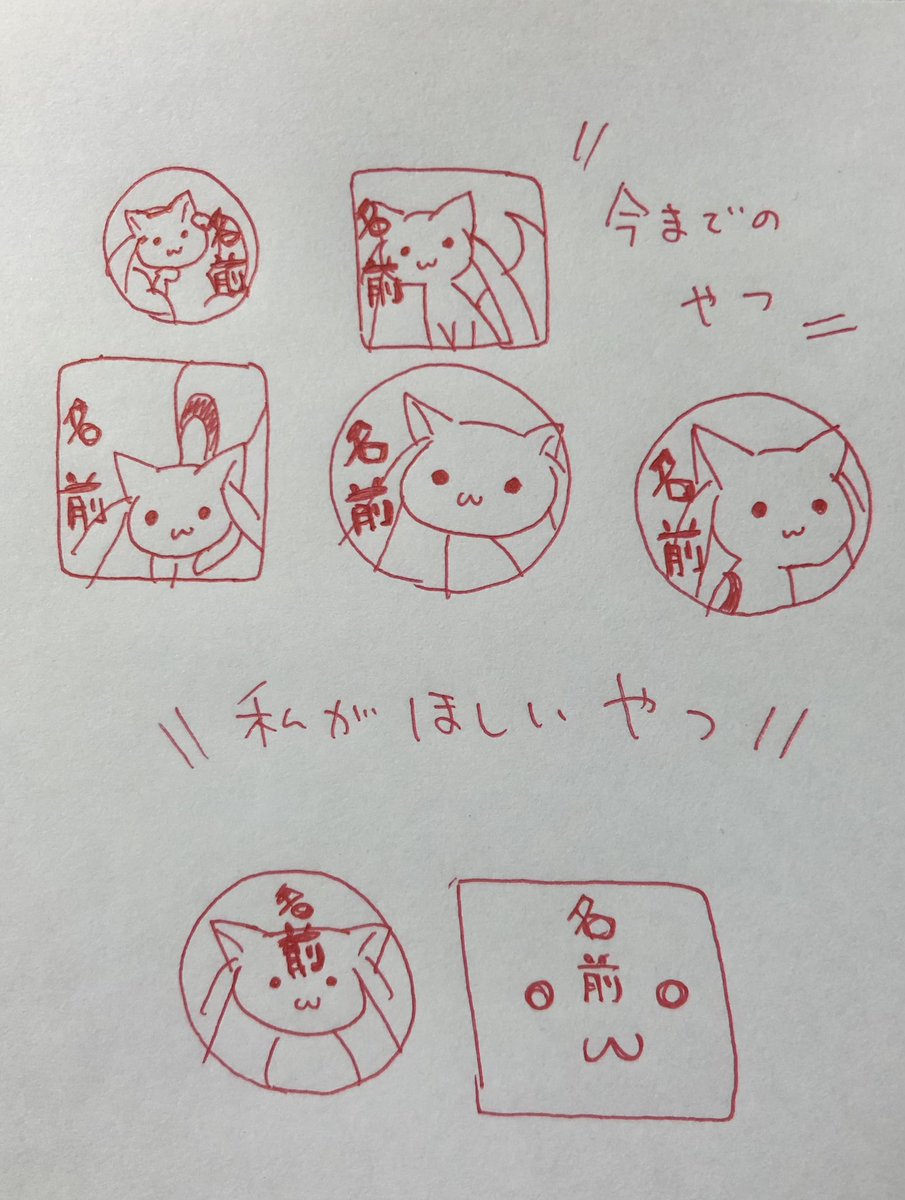 名前
名前
今までの
やつ
名前
名前
名前
私がほしいやつ
名前
名前